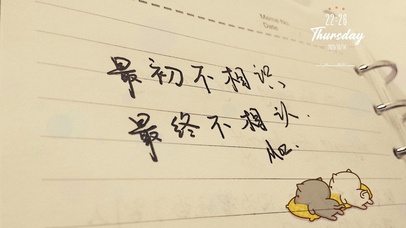 22:28
Thursday
最初不相识、
最终不相认.